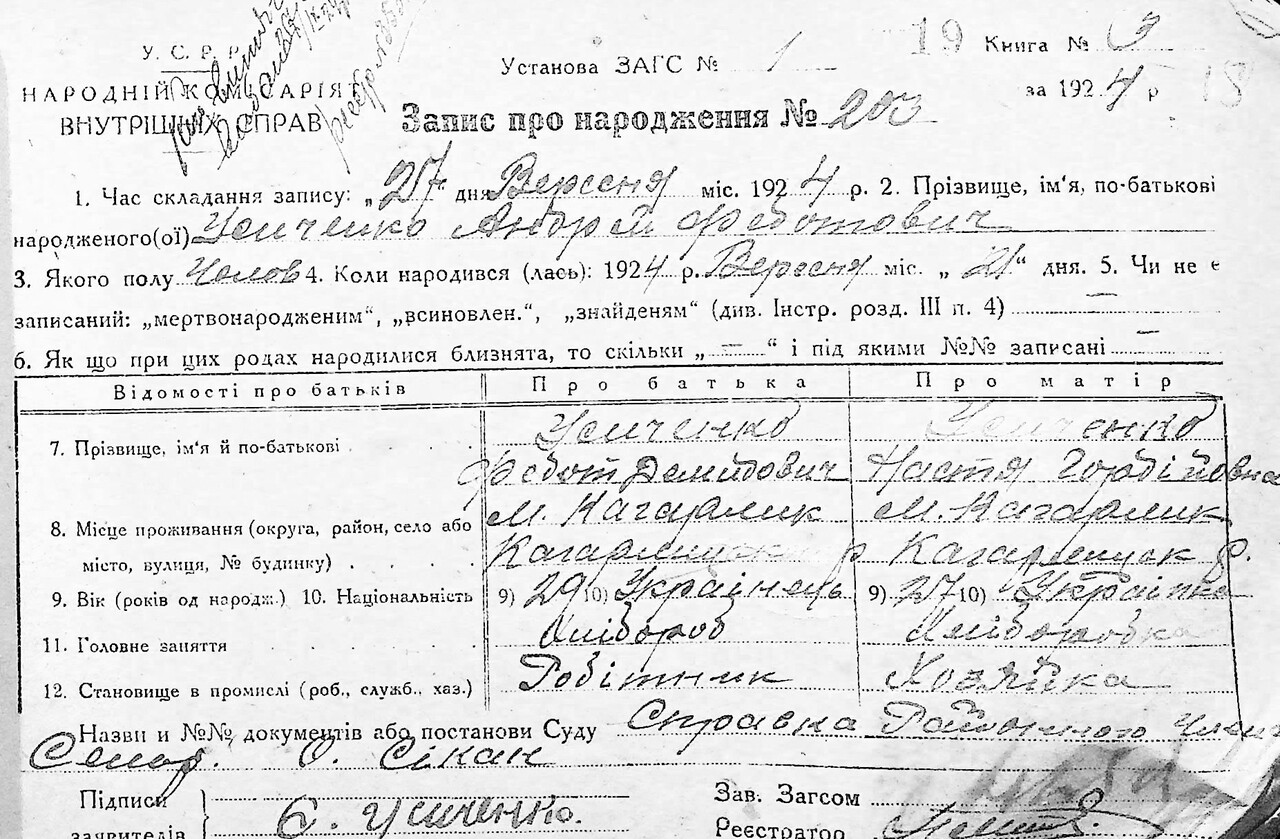 У. С. Р. Р.
НАРОДНІЙ КОМІСАРІЯТ
ВНУТРІШНІХ СПРАВ
Установа ЗАГС № 1
19 Книга № 3
за 1924 р 18
Запис про народження № 203
1. Час складання запису: „27 дня Вересня міс. 1924 р. 2. Прізвище, ім'я, по-батькові
народженого(ої) Усиченко Андрей Федотович
3. Якого полу Челов 4. Коли народився (лась): 1924 р. Вересня міс. „21“ дня. 5. Чи не є
записаний: „мертвонародженим“, „всиновлен.“, „знайденям“ (див. Інстр. розд. III п. 4) —
6. Як що при цих родах народилися близнята, то скільки „—“ і під якими №№ записані —
Відомості про батьків Про батька Про матір
7. Прізвище, ім'я й по-батькові Усиченко Усиченко
Федот Демидович Настя Гордіївна
8. Місце проживання (округа, район, село або М. Кагарлик М. Кагарлик
місто, вулиця, № будинку) Кагарлицьк р Кагарлицьк р.
9. Вік (років од народж.) 10. Національність 9) 29 10) Українець 9) 27 10) Українка
11. Головне заняття Хлібороб Хліборобка
12. Становище в промислі (роб., служб., хаз.) Робітник Хозяйка
Назви и №№ документів або постанови Суду Справка Районного
О. Сікан
Підписи
заявителів Є. Усиченко.
Зав. Загсом
Реєстратор